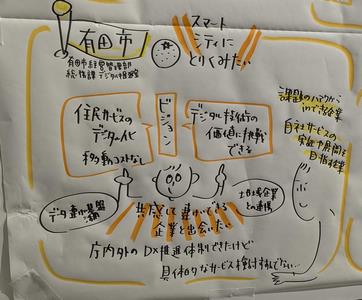 有田市
有田市経営管理部
総務課デジタル推進室
スマート
シティに
とりくみたい
住民サービスの
デジタル化
移動コストなし
ビジョン
デジタル技術の
価値に挑戦
できる
課題のハヤクから
inできる企業
自社サービスの
実証や展開を
目指す企業
データ連携基盤
活用
共感して豊かにする
企業と出会いたい
地域企業
との連携
庁内外のDX推進体制できたけど
具体的なサービス検討すれてない…